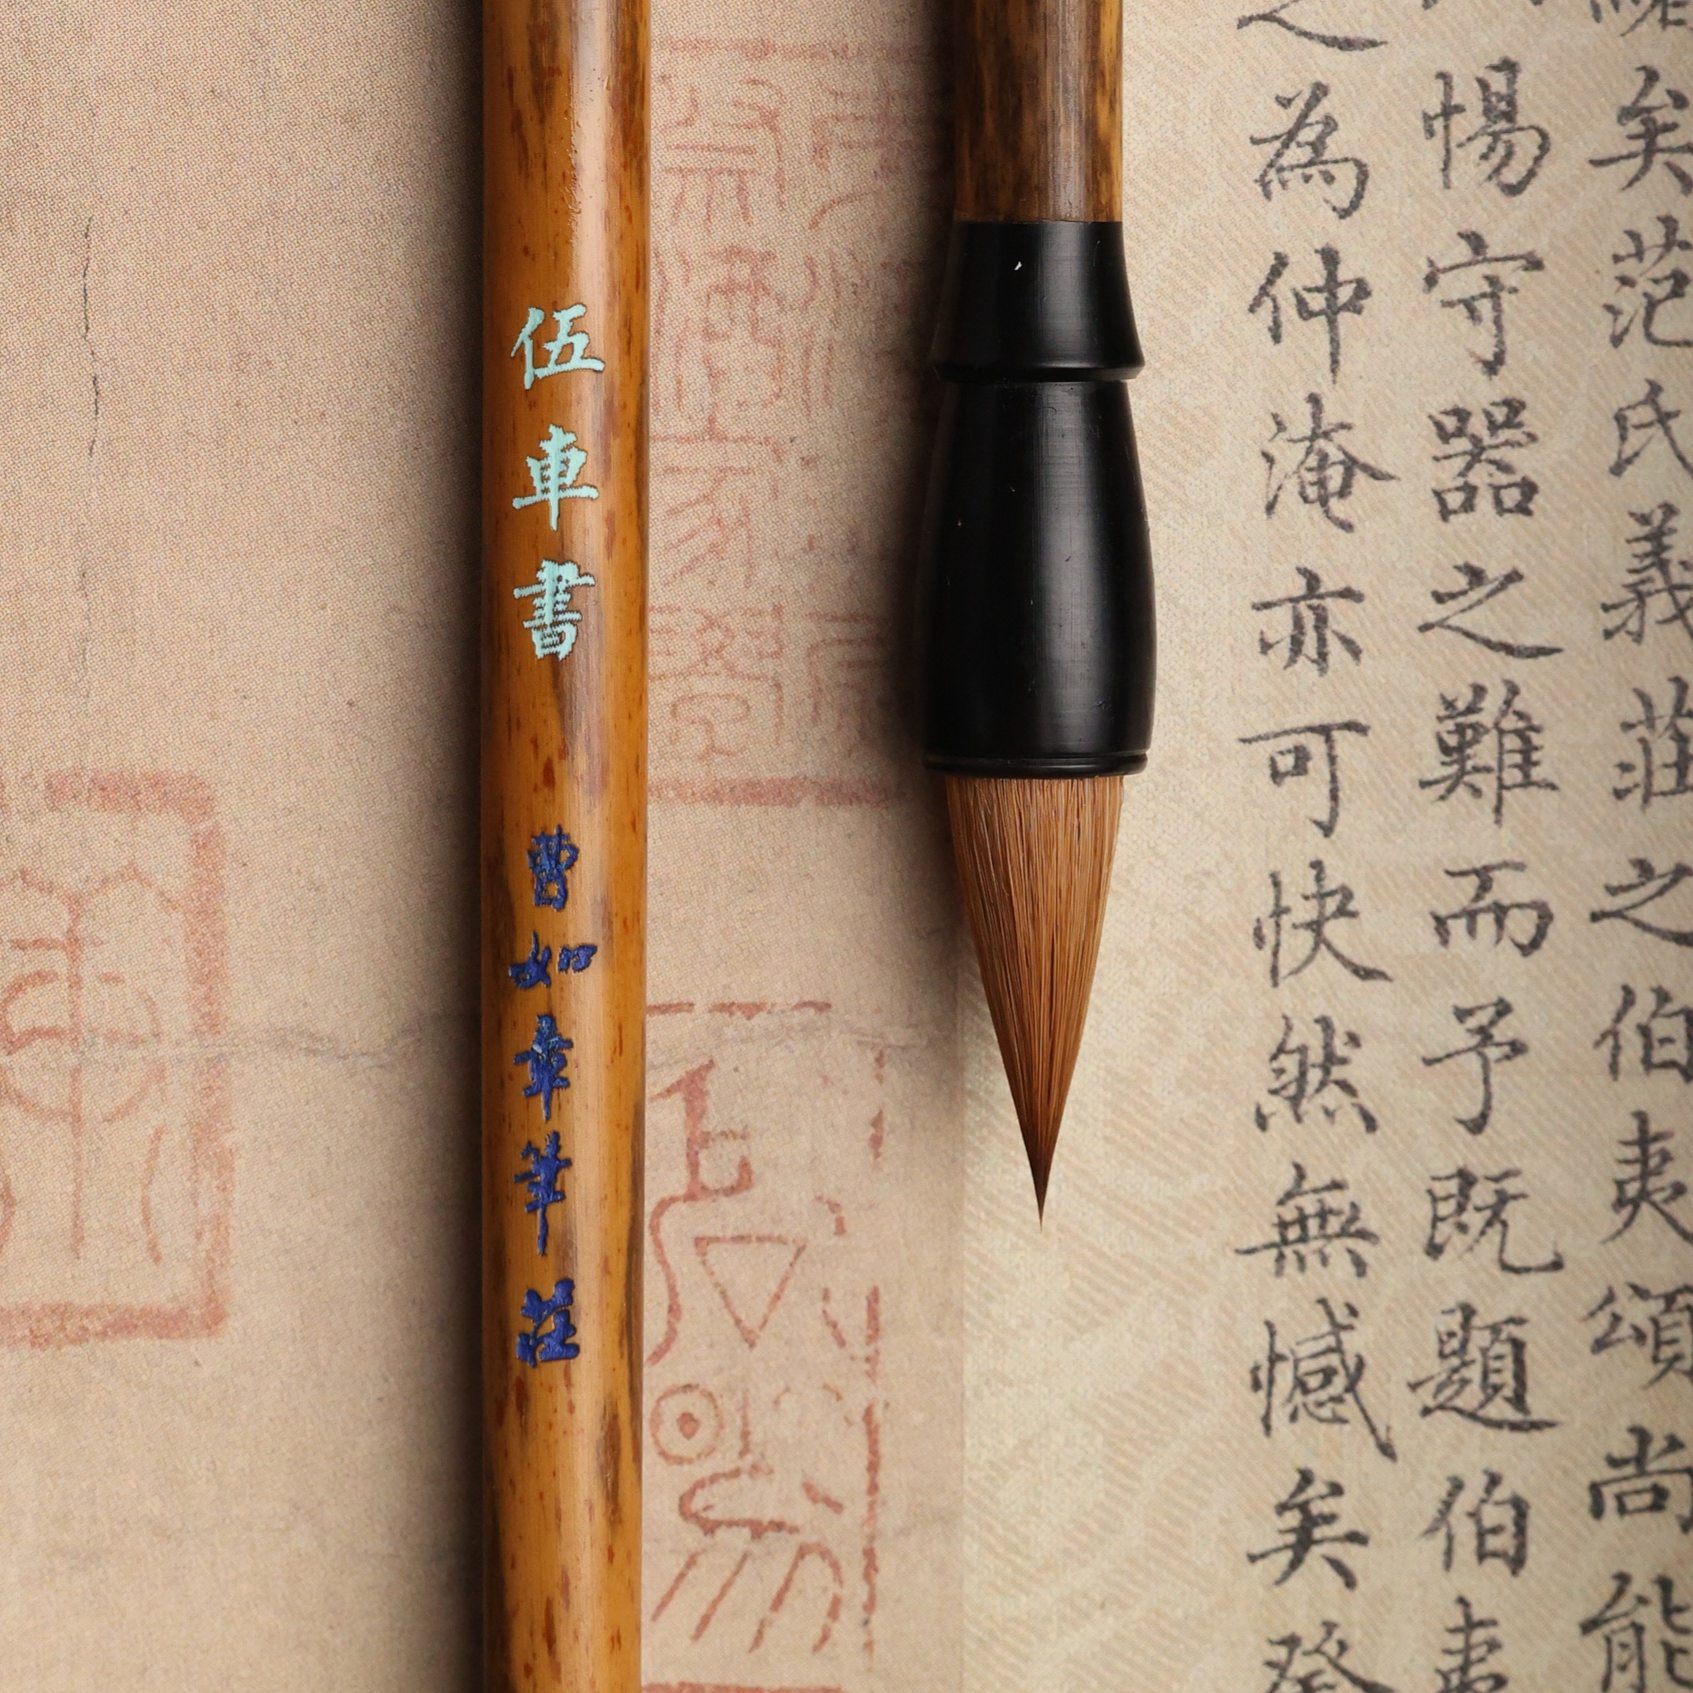 矣范氏義莊之伯夷頌尚能
惕守器之難而予既題伯夷
之為仲淹亦可快然無憾矣
伍車書
曹如章筆莊